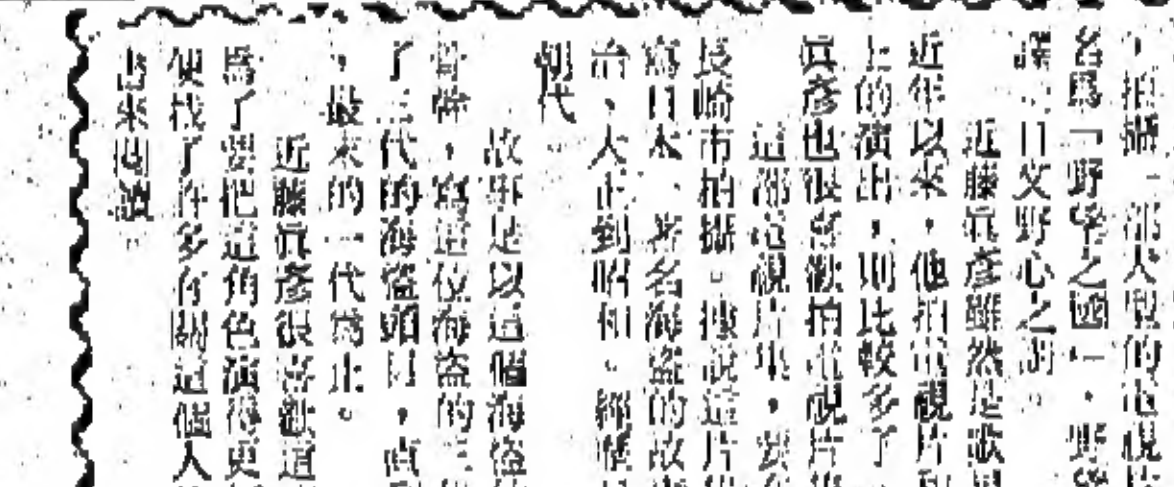 ，拍攝一部大型的電視片
名爲「野望之國」，野望
譯：日文野心之謂。
近藤眞彥雖然是歌星
近年以來，他拍電視片和
上的演出，則比較多了
眞彥也很喜歡拍電視片集
這部電視片集，要在
長崎市拍攝。據說這片
寫日本一著名海盜的故事
治、大正到昭和。經歷
朝代。
故事是以這個海盜
骨幹，寫這位海盜的三
了三代的海盜頭目，直
，最末的一代爲止。
近藤眞彥很喜歡這
爲了要把這角色演得更
便找了許多有關這個人
書來閱讀